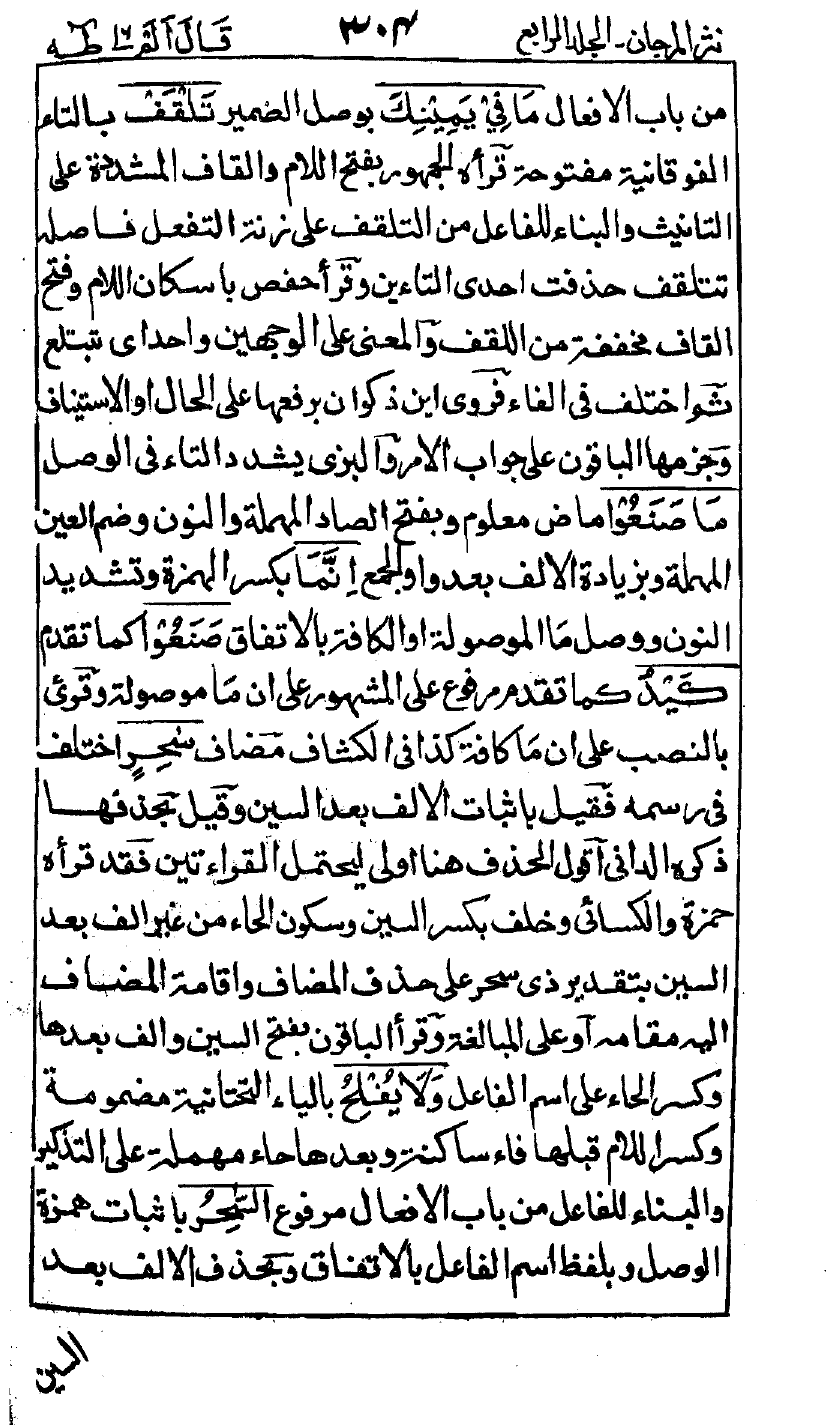 نثر المرجان - الجلد الرابع ٣٠٤ قَالَ اَلَمْ ١٦ طٰه
من باب الافعال مَا فِيْ يَمِيْنِكَ بوصل الضمير تَلْقَفْ بالتاء
الفوقانية مفتوحة قرأه الجمهور بفتح اللام والقاف المشددة على
التانيث والبناء للفاعل من التلقف على زنة التفعل فاصله
تتلقف حذفت احدى التاءين وقرأ حفص باسكان اللام وفتح
القاف مخففة من اللقف والمعنى على الوجهين واحد اى تبتلع
ثم اختلف فى الفاء فروى ابن ذكوان برفعها على الحال او الاستيناف
وجزمها الباقون على جواب الامر والبزى يشدد التاء فى الوصل
مَا صَنَعُوْا ماض معلوم وبفتح الصاد المهملة والنون وضم العين
المهملة وبزيادة الالف بعد واو الجمع اِنَّمَا بكسر الهمزة وتشديد
النون ووصل مَا الموصولة او الكافة بالاتفاق صَنَعُوْا كما تقدم
كَيْدُ كما تقدم مرفوع على المشهور على ان مَا موصولة وقرئ
بالنصب على ان مَا كافة كذا فى الكشاف مضاف سٰحِرٍ اختلف
فى رسمه فقيل باثبات الالف بعد السين وقيل بحذفها
ذكره الدانى اقول الحذف هنا اولى ليحتمل القراءتين فقد قرأه
حمزة والكسائى وخلف بكسر السين وسكون الحاء من غير الف بعد
السين بتقدير ذى سحر على حذف المضاف واقامة المضاف
اليه مقامه او على المبالغة وقرأ الباقون بفتح السين والف بعدها
وكسر الحاء على اسم الفاعل وَلَا يُفْلِحُ بالياء التحتانية مضمومة
وكسر اللام قبلها فاء ساكنة وبعدها حاء مهملة على التذكير
والبناء للفاعل من باب الافعال مرفوع السّٰحِرُ باثبات همزة
الوصل وبلفظ اسم الفاعل بالاتفاق وبحذف الالف بعد
السين